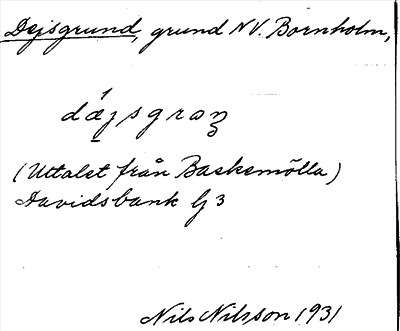 Dejsgrund, grund NV. Bornholm,
dǽjsgron
(Uttalet från Baskemölla)
Davidsbank G 3
Nils Nilsson 1931